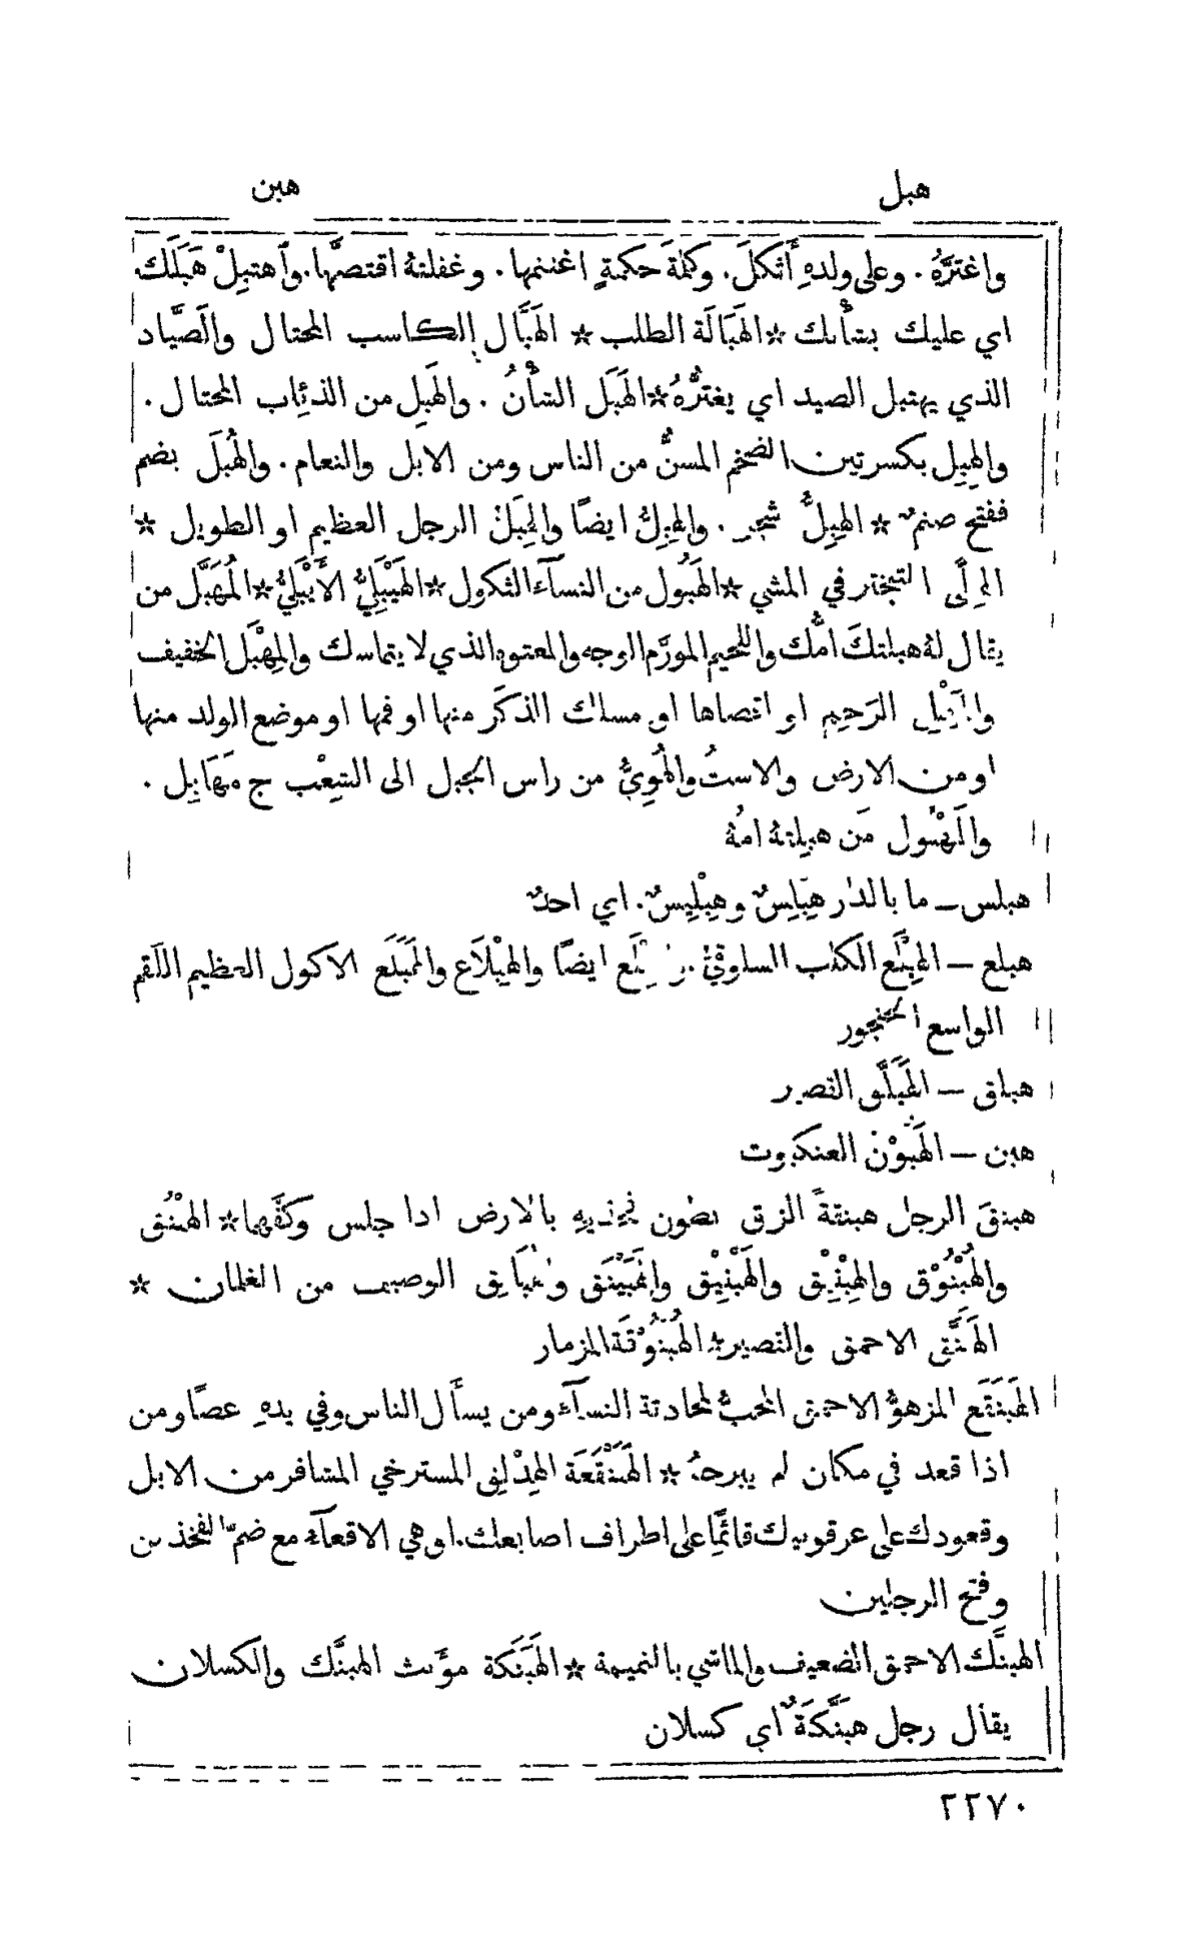 هبل
هبن
واغترَّهُ . وعلى ولدهِ أَثكلَ . وكلمةَ حكمةٍ اغتنمها . وغفلتهُ اقتصَّها . وٱهتبِلْ هَبَلَك
اي عليك بشأنك ☆ الهَبَالَة الطلب ☆ الهَبَّال الكاسب المحتال والصَّيَّاد
الذي يهتبل الصيد اي يغترُّهُ ☆ الهَبَل الشأْنُ . والهَبِل من الذئاب المحتال .
والهِبِل بكسرتين الضخم المسنُّ من الناس ومن الابل والنعام . والهُبَل بضم
ففتح صنمٌ ☆ الهِبِلُّ شجر . والهِبِلُّ ايضًا والهِبَلُّ الرجل العظيم او الطويل ☆
التبختر في المشي ☆ الهَبُول من النسآء الثكول ☆ الهَيْبَلِيُّ الأَيْبَلِيُّ ☆ المُهَبَّل من
يقال لهُ هبلتكَ امُّك واللحيم المورَّم الوجه والمعتوه الذي لا يتماسك والمِهْبَل الخفيف
والمَهْبِل الرَحِم او اقصاها او مسلك الذكَر منها او فمها او موضع الولد منها
او من الارض والاستُ والهُوِيُّ من راس الجبل الى الشِعْب ج مَهَابِل .
والمَهْبُول مَن هبلتهُ امهُ
هبلس ــ ما بالدار هِبْلِسٌ وهِبْلِيسٌ . اي احدٌ
هبلع ــ الهِبْلَع الكلب السلوقيُّ . ايضًا والهِبْلَاع والهَبَلَّع الاكول العظيم اللَقم
الواسع الحنجور
هبلق ــ الهَبَلَّق القصير
هبن ــ الهَبُوْن العنكبوت
هبنقَ الرجل هبنقةً الزق بطون فخذيهِ بالارض اذا جلس وكفَّهما ☆ الهُبْنُق
والهُبْنُوْق والهِبْنِيْق والهَبْنِيْق والهَبَيْنَق والهَبَانِق الوصيف من الغلمان ☆
الهَبَنَّق الاحمق والقصير ☆ الهُبْنُوْقَة المزمار
الهَبَنْقَع المزهوُّ الاحمق المحبُّ لمحادثة النسآء ومن يسأَل الناس وفي يدهِ عصًا ومن
اذا قعد في مكان لم يبرحهُ ☆ الهَبَنْقَعَة المسترخي المشافر من الابل
وقعودك على عرقوبيك قائمًا على اطراف اصابعك . او هي الاقعآء مع ضمّ الفخذين
وفتح الرجلين
الهبنَّك الاحمق الضعيف والماشي بالنميمة ☆ الهَبَنَّكَة مؤَنث الهبنَّك والكسلان
يقال رجل هبَنَّكَةٌ اي كسلان
٢٢٧٠